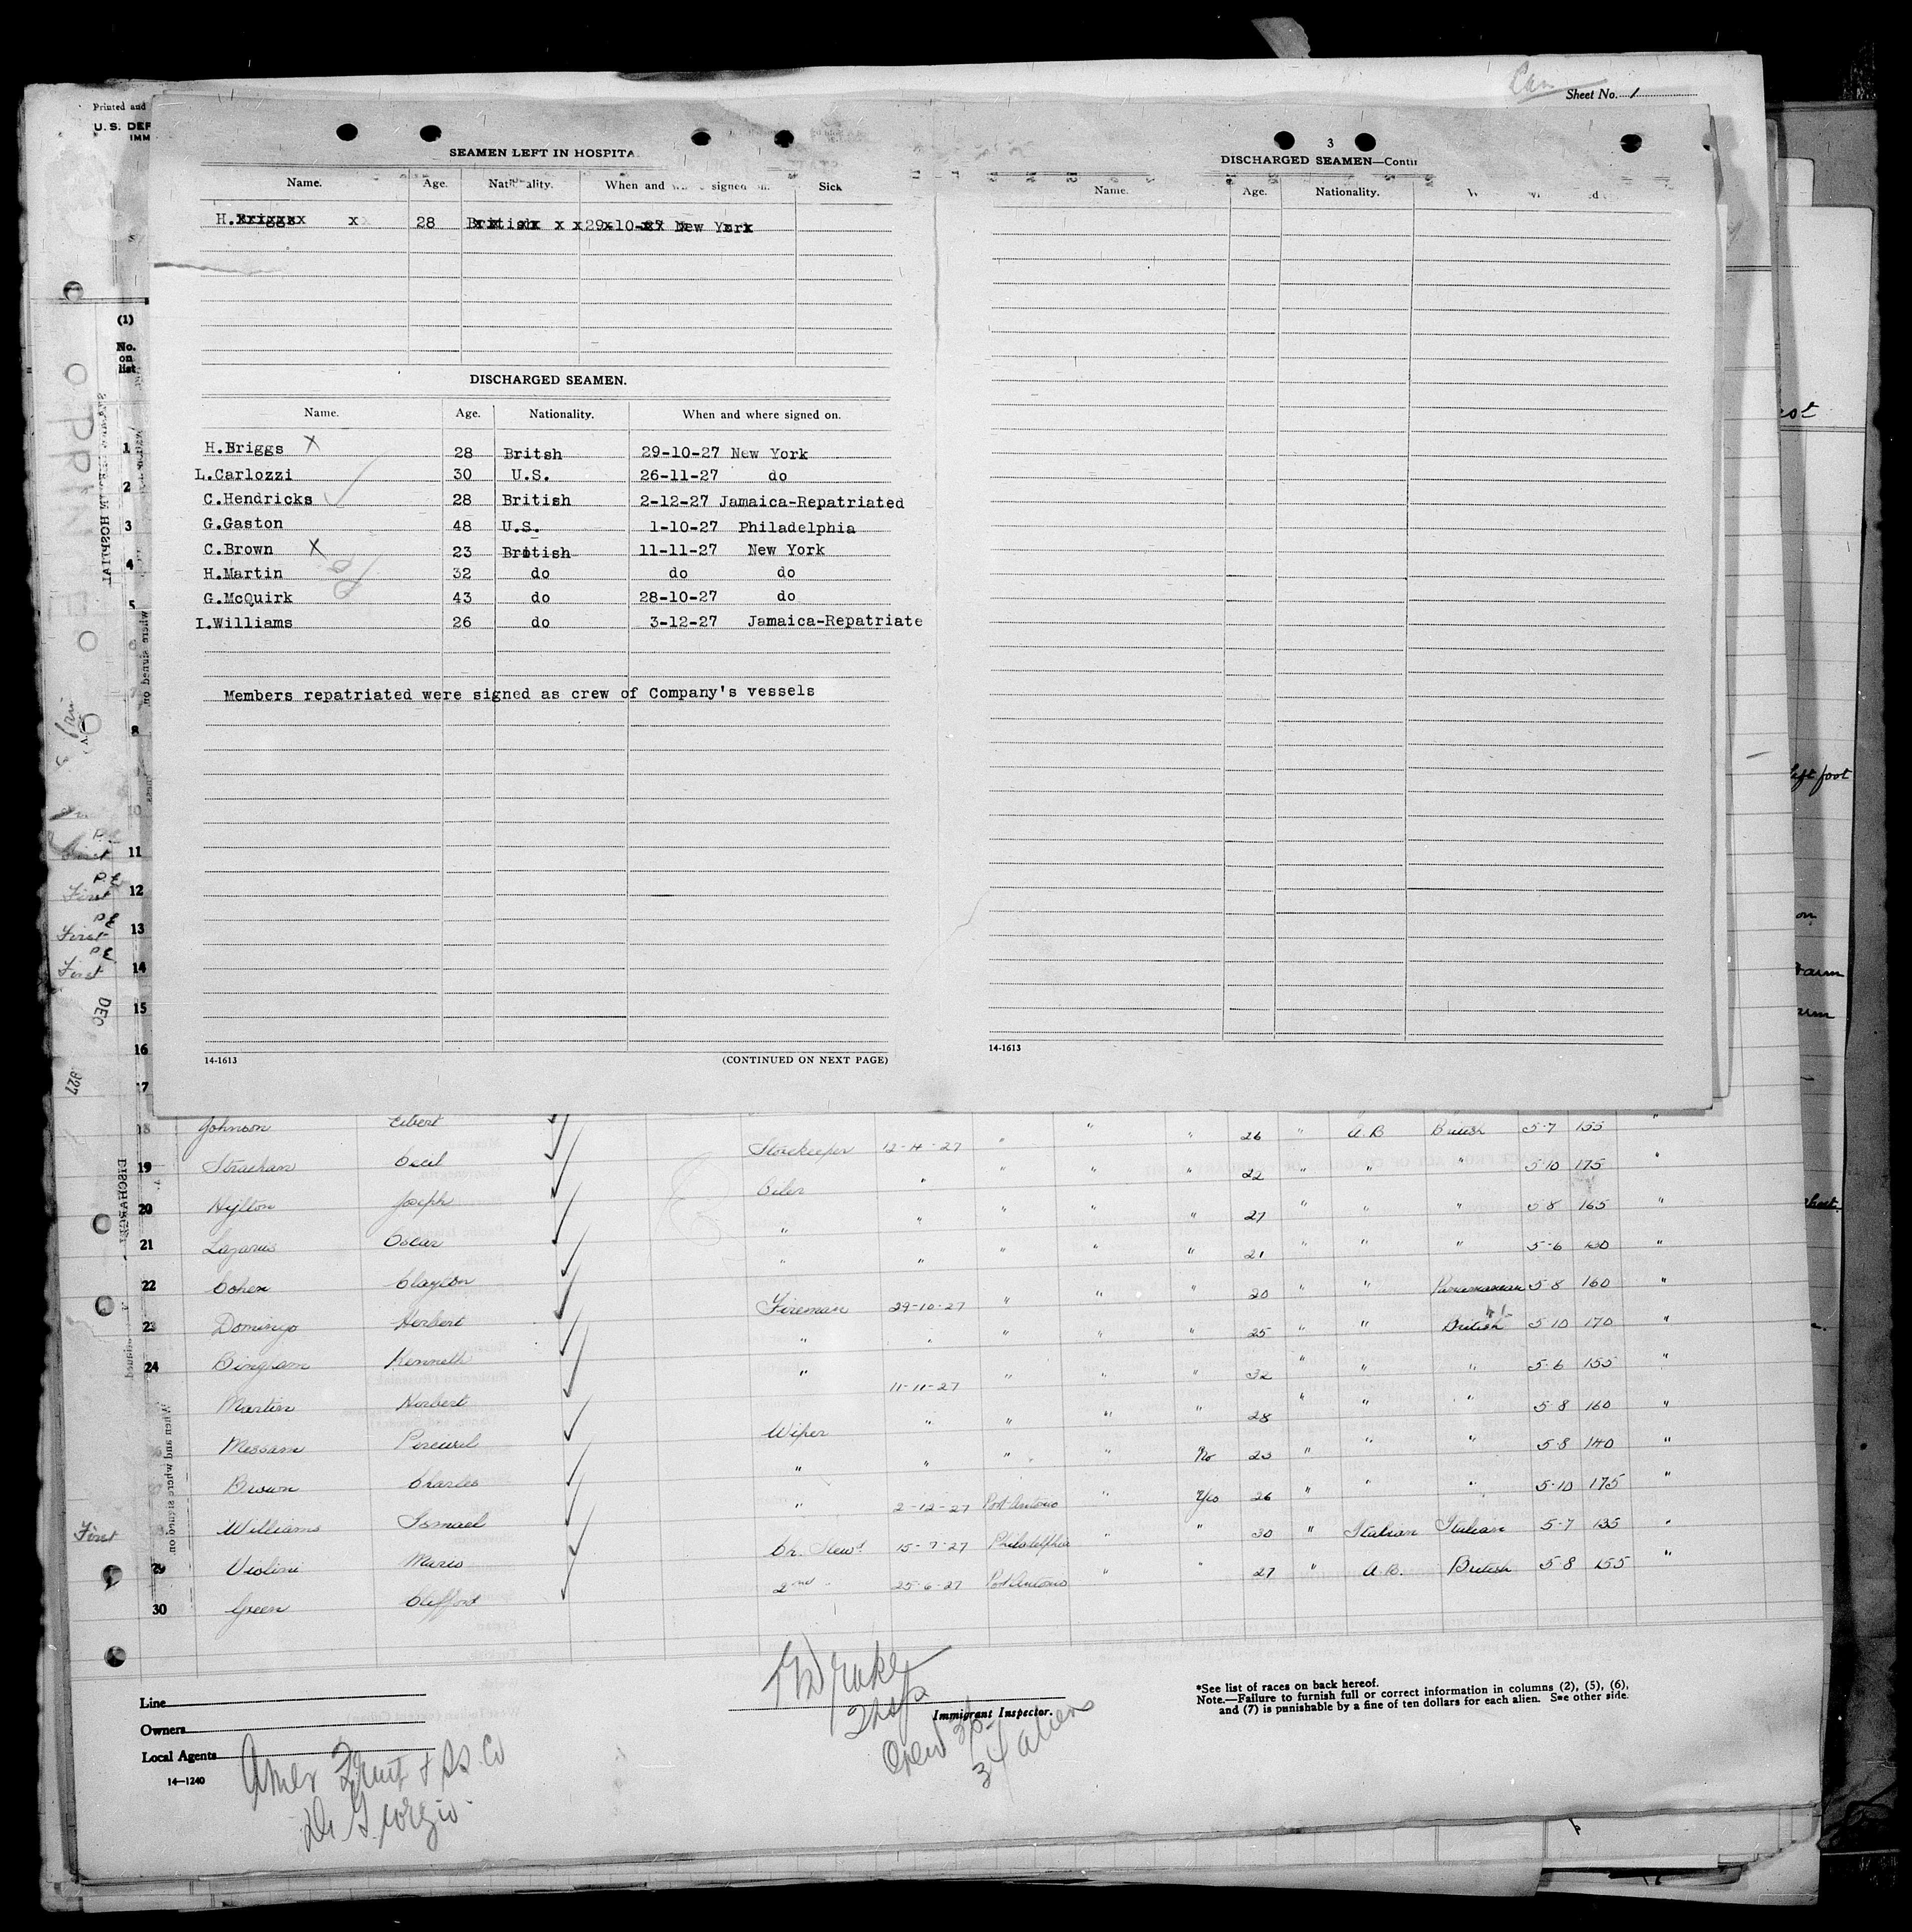 Sheet No. 1
Printed and
U. S. DEP
IMM
SEAMEN LEFT IN HOSPITA
Name. Age. Nationality. When and signed on. Sick
H.Briggs 28 British 29-10-27 New York
DISCHARGED SEAMEN.
Name. Age. Nationality. When and where signed on.
H.Briggs X 28 Britsh 29-10-27 New York
L.Carlozzi 30 U.S. 26-11-27 do
C.Hendricks 28 British 2-12-27 Jamaica-Repatriated
G.Gaston 48 U.S. 1-10-27 Philadelphia
C.Brown X 23 British 11-11-27 New York
H.Martin 32 do do do
G.McQuirk 43 do 28-10-27 do
I.Williams 26 do 3-12-27 Jamaica-Repatriate
Members repatriated were signed as crew of Company's vessels
14-1613 (CONTINUED ON NEXT PAGE)
3
DISCHARGED SEAMEN—Contin
Name. Age. Nationality.
14-1613
(1)
No.
on
list
1
2
3
4
5
8
11
12
13
14
15
16
17
left foot
First
First
First
DEC
18 Johnson Egbert Storekeeper 12-11-27 " " " 26 " A.B British 5-7 155 "
19 Strachan Cecil Oiler " " " " 22 " " " 5-10 175 "
20 Hylton Joseph " " " " " 27 " " " 5-8 165 "
21 Lazarus Oscar " " " " " 21 " " " 5-6 130 "
22 Cohen Clayton Fireman 29-10-27 " " " 20 " " Panamanian 5-8 160 "
23 Domingo Herbert " " " " " 25 " " British 5-10 170 "
24 Bingham Kenneth " 11-11-27 " " " 32 " " " 5-6 155 "
Martin Herbert Wiper " " " " 28 " " " 5-8 160 "
Messam Percival " " " " No 23 " " " 5-8 140 "
Brown Charles " 2-12-27 Port Antonio " Yes 26 " " " 5-10 175 "
First Williams Ismael Ch. Stewd 15-7-27 Philadelphia " " 30 " Italian Italian 5-7 135 "
29 Violini Mario 2nd " 25-6-27 Port Antonio " " 27 " A.B. British 5-8 155 "
30 Green Clifford
Line
Owners
Local Agents
14—1240
Amer Fruit & SS. Co
Di Giorgio
Immigrant Inspector.
Crew 36
34 aliens
*See list of races on back hereof.
Note.—Failure to furnish full or correct information in columns (2), (5), (6),
and (7) is punishable by a fine of ten dollars for each alien. See other side.